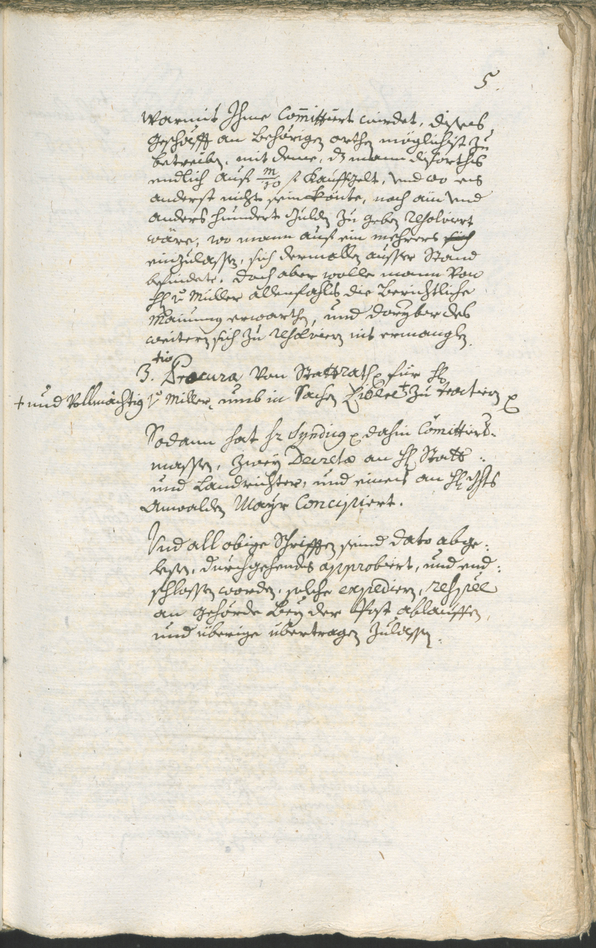 5.
warmit Ihme Committiert wirdet, dises
geschäfft an behörigen orthen möglichist zu
betreiben, mit deme, dz mann disorthß
endlich auf m/10 f Kauffgelt, und wo es
anderst nichts sein könte, noch ain und
anders hundert gulden zu geben resolviert
wäre, wo mann auf ein mehrers sich
einzulassen, sich dermallen ausser Stand
befindete, doch aber wolle mann von
H: v: Müller allenfahls die berichtliche
Mainung erwarthen, und doryber des
weitern sich zu resolviern nit ermanglen.
3.tio Procura von Stattrath für H:
+ und Vollmächtig v: Miller, umb in Sachen + zu tractiren
Sodann hat hr Syndicus dahin Comitterter-
massen, zwey Decreta an H: Statt-
und Landrichter, und eines an H:
Anwalden Mayr Concipiert.
Und all obige Schrifften seind dato abge-
lesen, durchgehends approbiert, und ent-
schlossen worden, solche expediern, respive
an gehörde bey der Post ablauffen,
und überige übertragen zulassen.